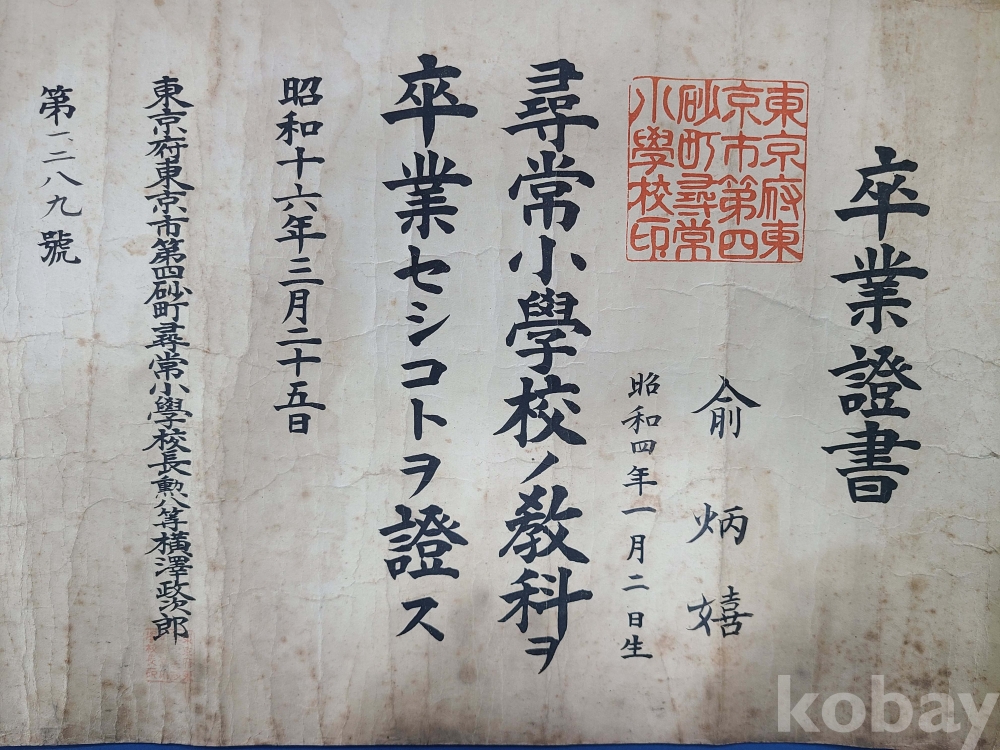 卒業證書
俞炳嬉
昭和四年一月二日生
東京府東
京市第四
砂町尋常
小學校印
尋常小學校ノ教科ヲ
卒業セシコトヲ證ス
昭和十六年三月二十五日
東京府東京市第四砂町尋常小學校長勲八等橫澤政次郎
第一二八九號
kobay